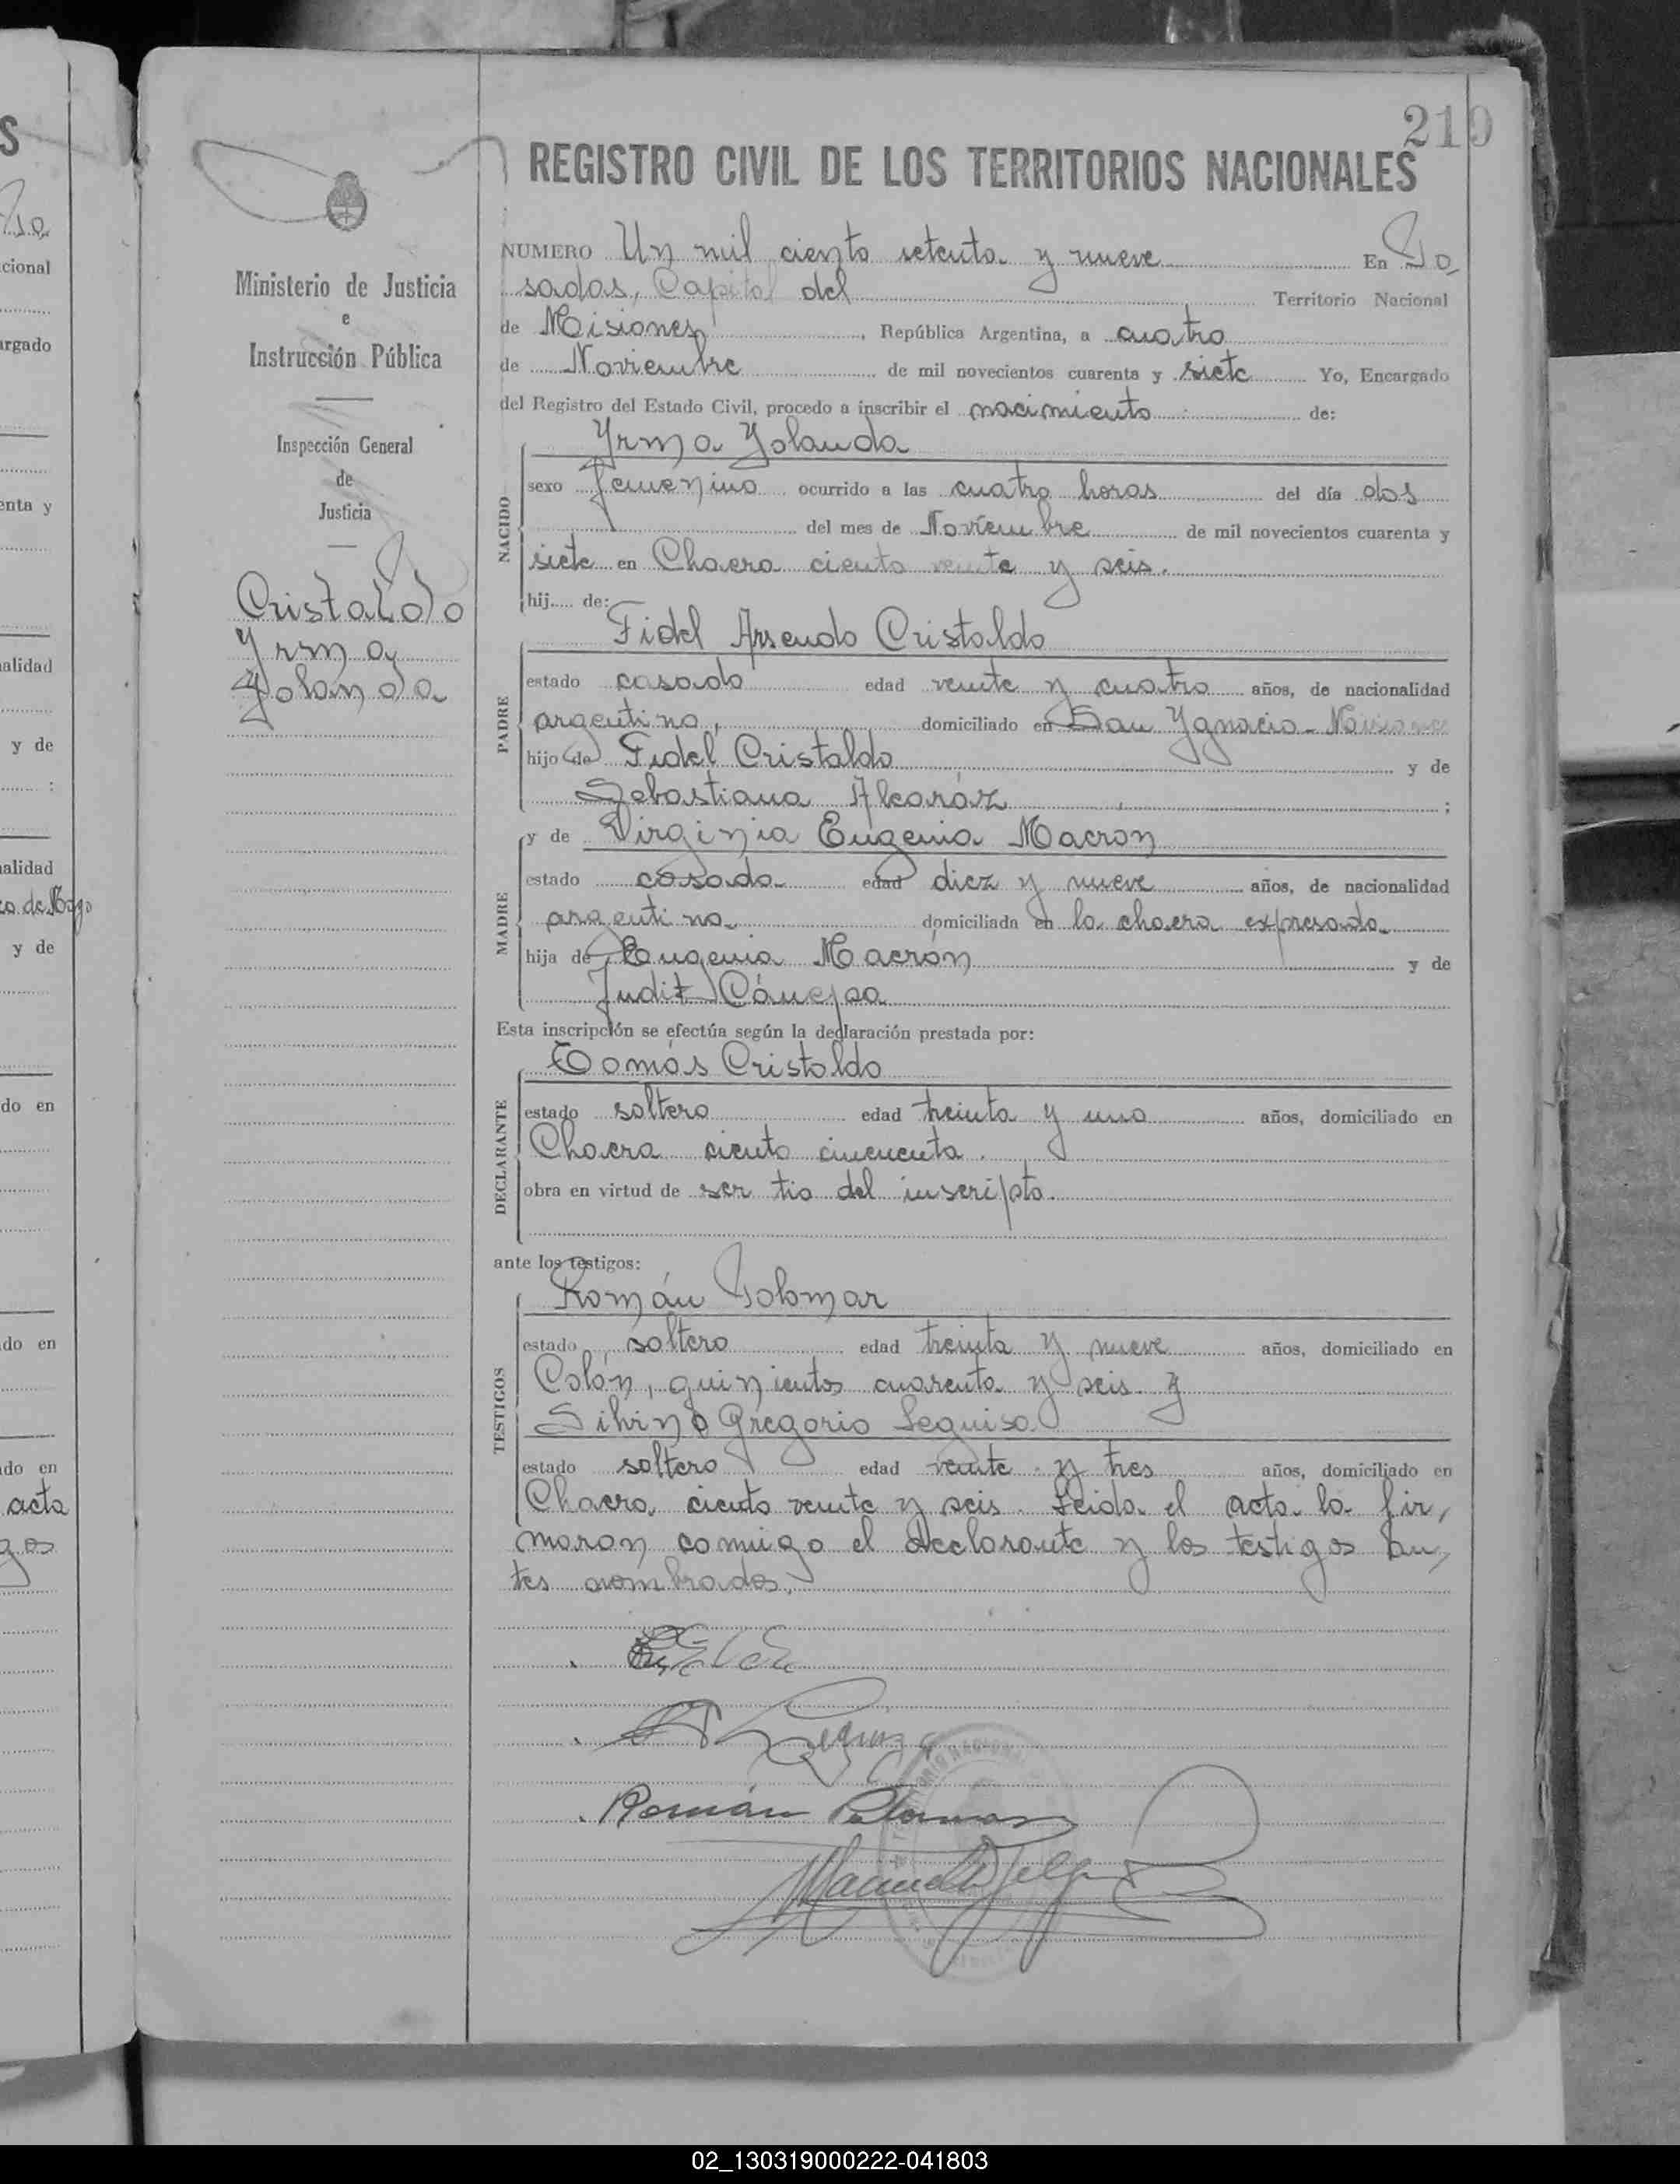 210
REGISTRO CIVIL DE LOS TERRITORIOS NACIONALES
Ministerio de Justicia
e
Instrucción Pública
Inspección General
de
Justicia
Cristaldo
Yrma
Yolanda
NUMERO Un mil ciento setenta y nueve En Po,
sadas, Capital del Territorio Nacional
de Misiones, República Argentina, a cuatro
de Noviembre de mil novecientos cuarenta y siete Yo, Encargado
del Registro del Estado Civil, procedo a inscribir el nacimiento de:
Yrma Yolanda
NACIDO
sexo femenino ocurrido a las cuatro horas del día dos
del mes de Noviembre de mil novecientos cuarenta y
siete en Chacra ciento veinte y seis.
hij..... de:
Fidel Arsendo Cristaldo
PADRE
estado casado edad veinte y cuatro años, de nacionalidad
argentino, domiciliado en San Ygnacio - Misiones
hijo de Fidel Cristaldo y de
Sebastiana Alcaráz ;
y de Virginia Eugenia Macron
MADRE
estado casada edad diez y nueve años, de nacionalidad
argentina domiciliada en la chacra expresada
hija de Eugenia Macrón y de
Judit
Esta inscripción se efectúa según la declaración prestada por:
Tomás Cristaldo
DECLARANTE
estado soltero edad treinta y uno años, domiciliado en
Chacra ciento cincuenta.
obra en virtud de ser tio del inscripto.
ante los testigos:
Román Polomar
TESTIGOS
estado soltero edad treinta y nueve años, domiciliado en
Colón, quinientos cuarenta y seis y
Silvino Gregorio Leguisa
estado soltero edad veinte y tres años, domiciliado en
Chacra ciento veinte y seis. Leida el acta la fir,
maron conmigo el declarante y los testigos an,
tes nombrados.
Román Palomar
02_130319000222-041803